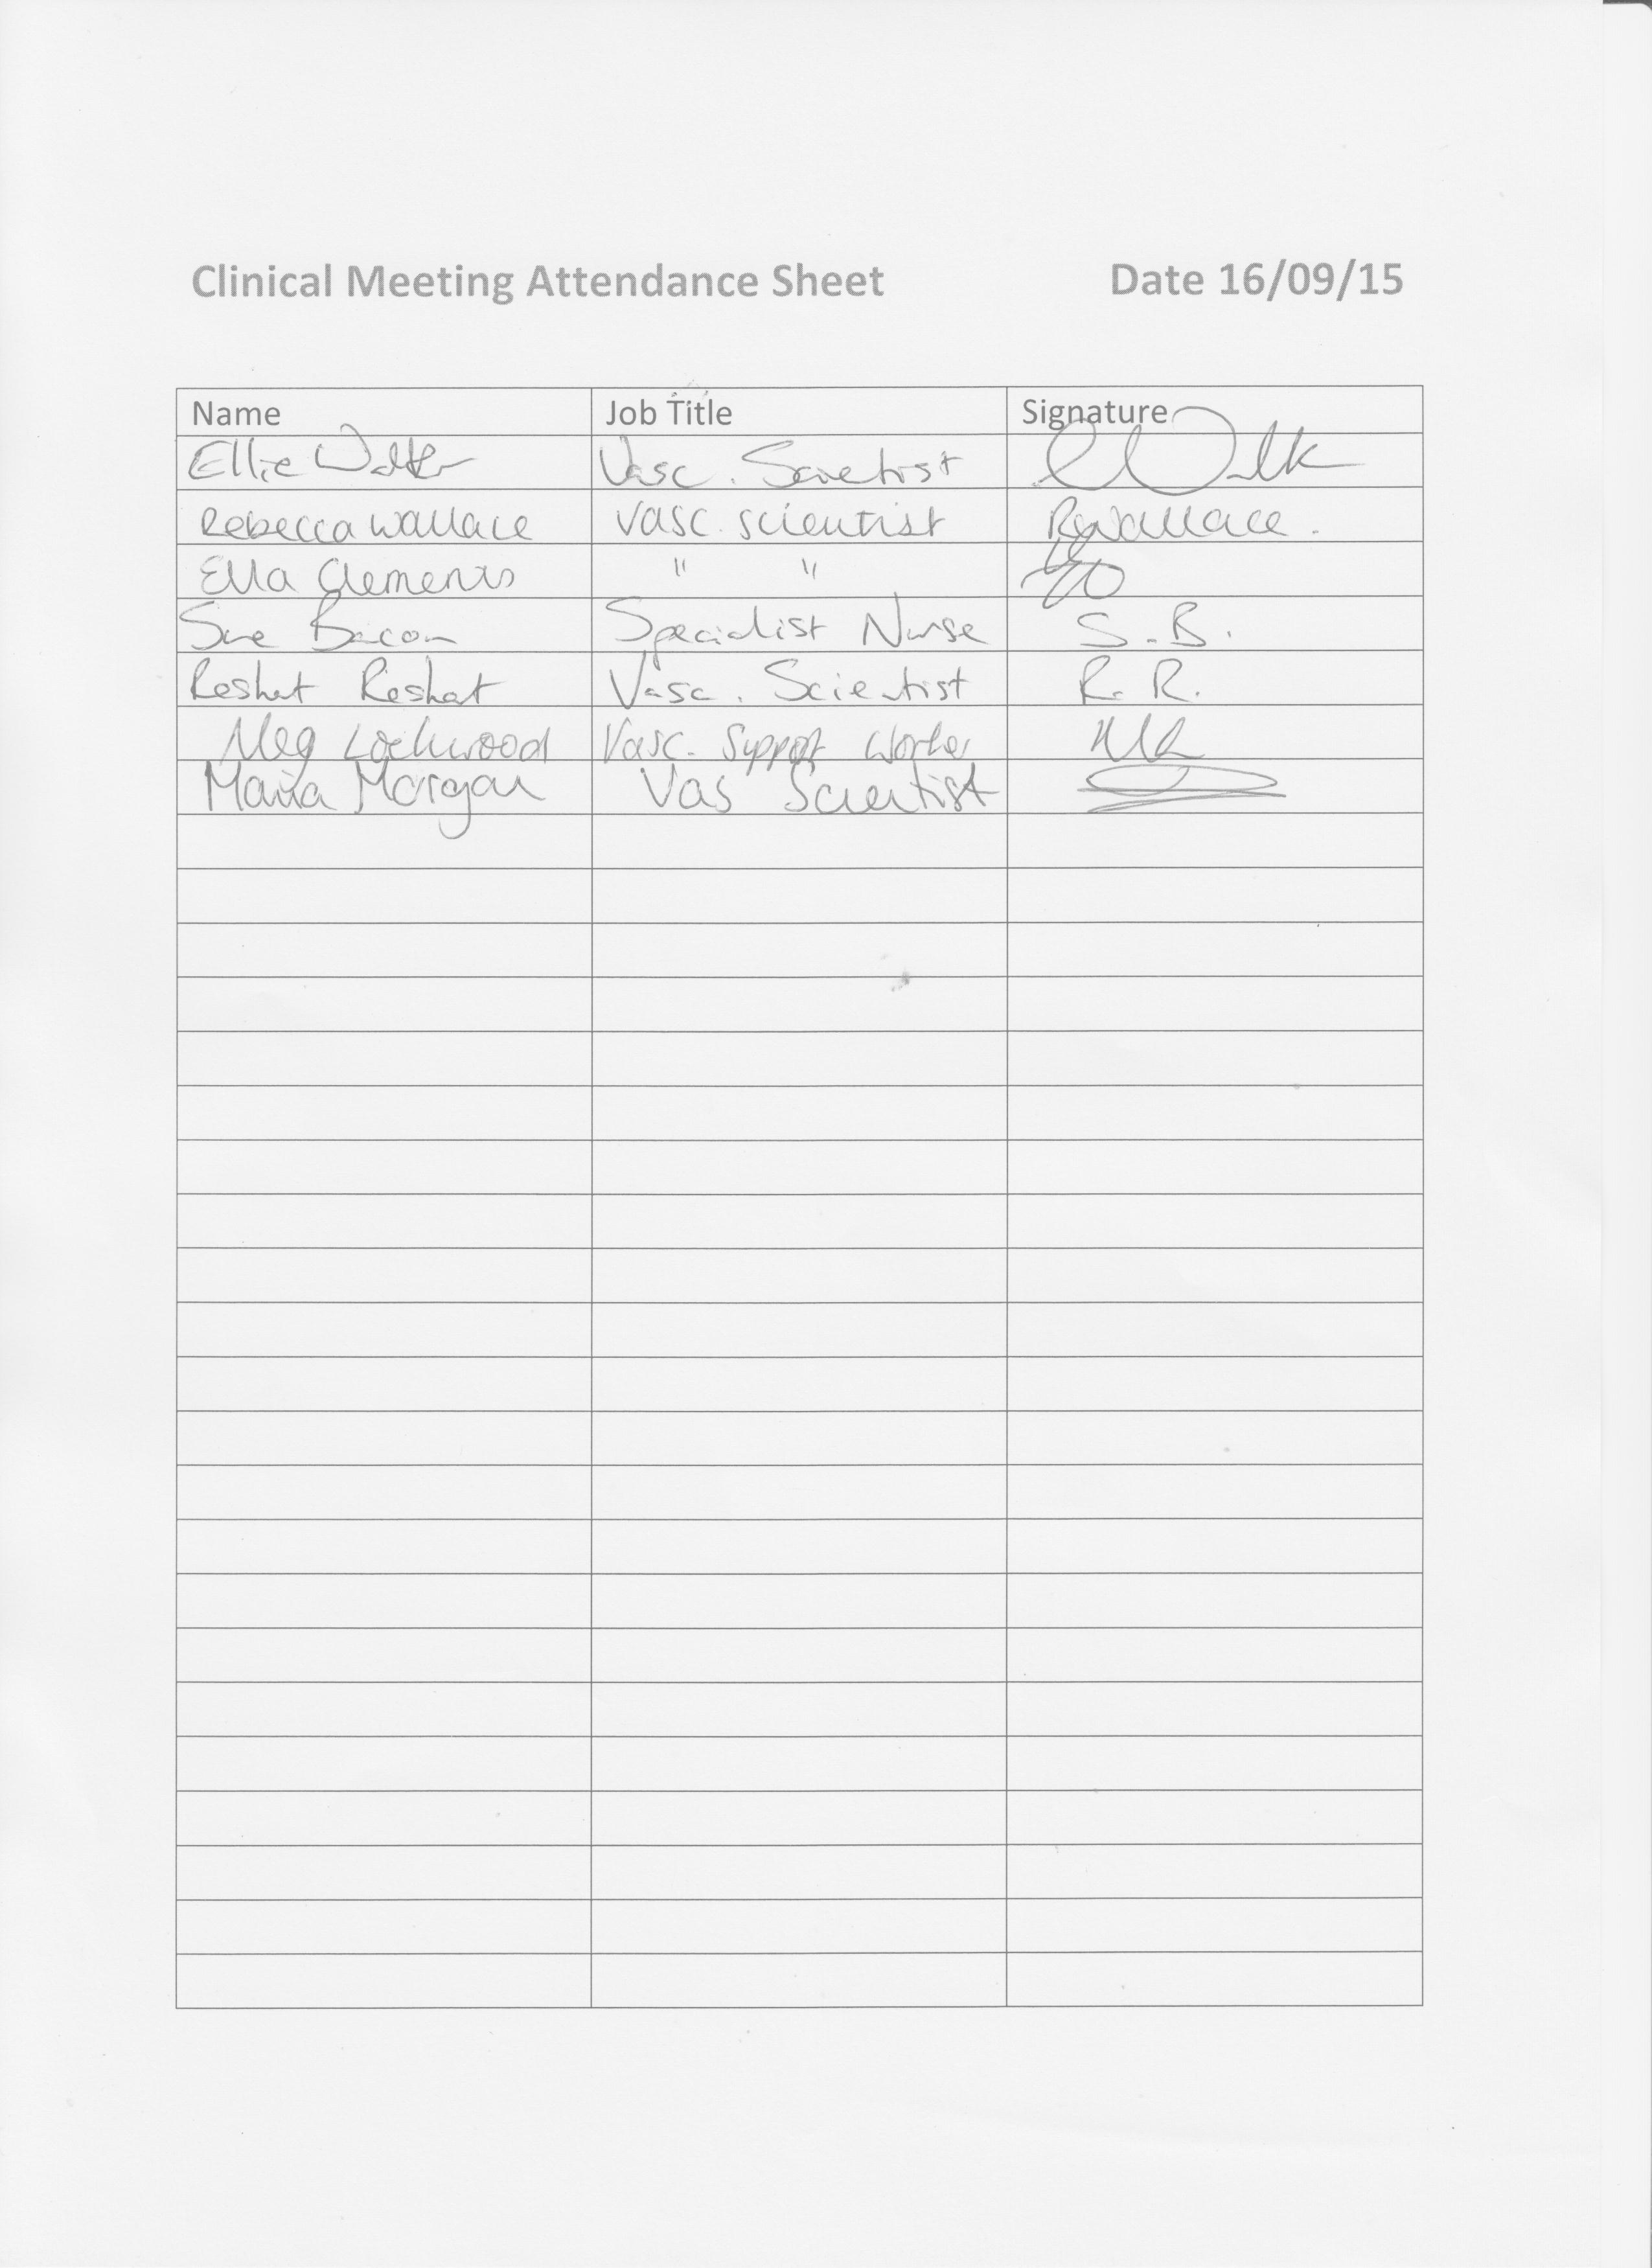 Clinical Meeting Attendance Sheet Date 16/09/15
Name Job Title Signature
Ellie Vasc. Scientist
Rebecca Wallace Vasc. scientist RWallace.
Ella Clements " "
Sue Bacon Specialist Nurse S.B.
Reshat Reshat Vasc. Scientist R.R.
Meg Lockwood Vasc. Support Worker ML
Maria Morgan Vas Scientist